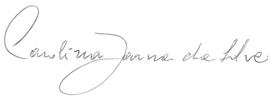 Carolina Joana da Silva